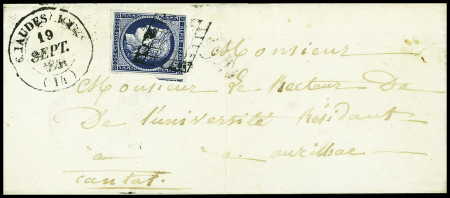 CHAUDES-AIGUES
19
SEPT.
(14)
Monsieur
Monsieur le Recteur De
De l'université Résidant
à à aurillac
cantal.